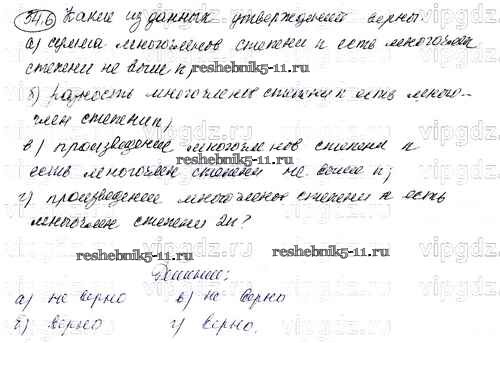 34.6 Какие из данных утверждений верны:
а) сумма многочленов степени n есть многочлен
степени не выше n;
reshebnik5-11.ru
б) разность многочленов степени n есть много-
член степени n;
в) произведение многочленов степени n
reshebnik5-11.ru
есть многочлен степени не выше n;
г) произведение многочленов степени n есть
многочлен степени 2n?
reshebnik5-11.ru reshebnik5-11.ru
Решение:
а) не верно в) не верно
б) верно г) верно.
vipgdz.ru